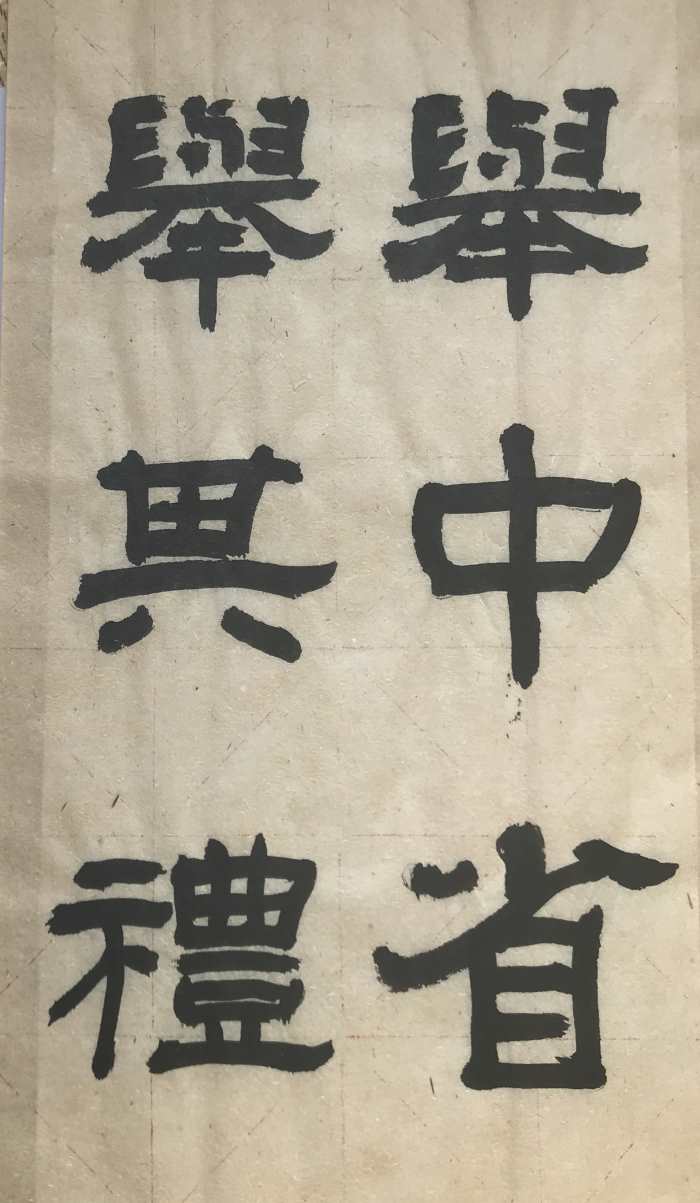 舉中省
舉其禮